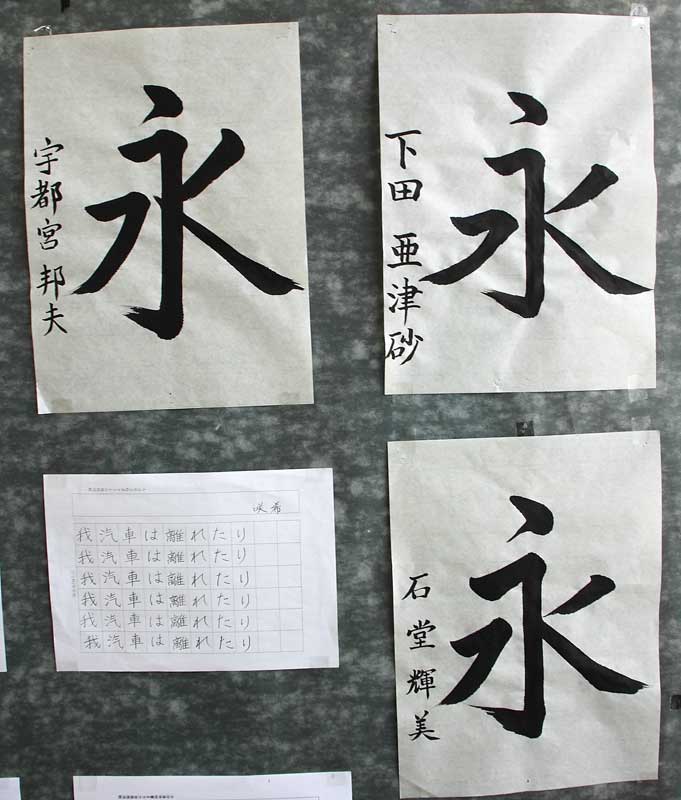 永
宇都宮邦夫
永
下田亜津砂
咲希
我汽車は離れたり
我汽車は離れたり
我汽車は離れたり
我汽車は離れたり
我汽車は離れたり
我汽車は離れたり
永
石堂輝美